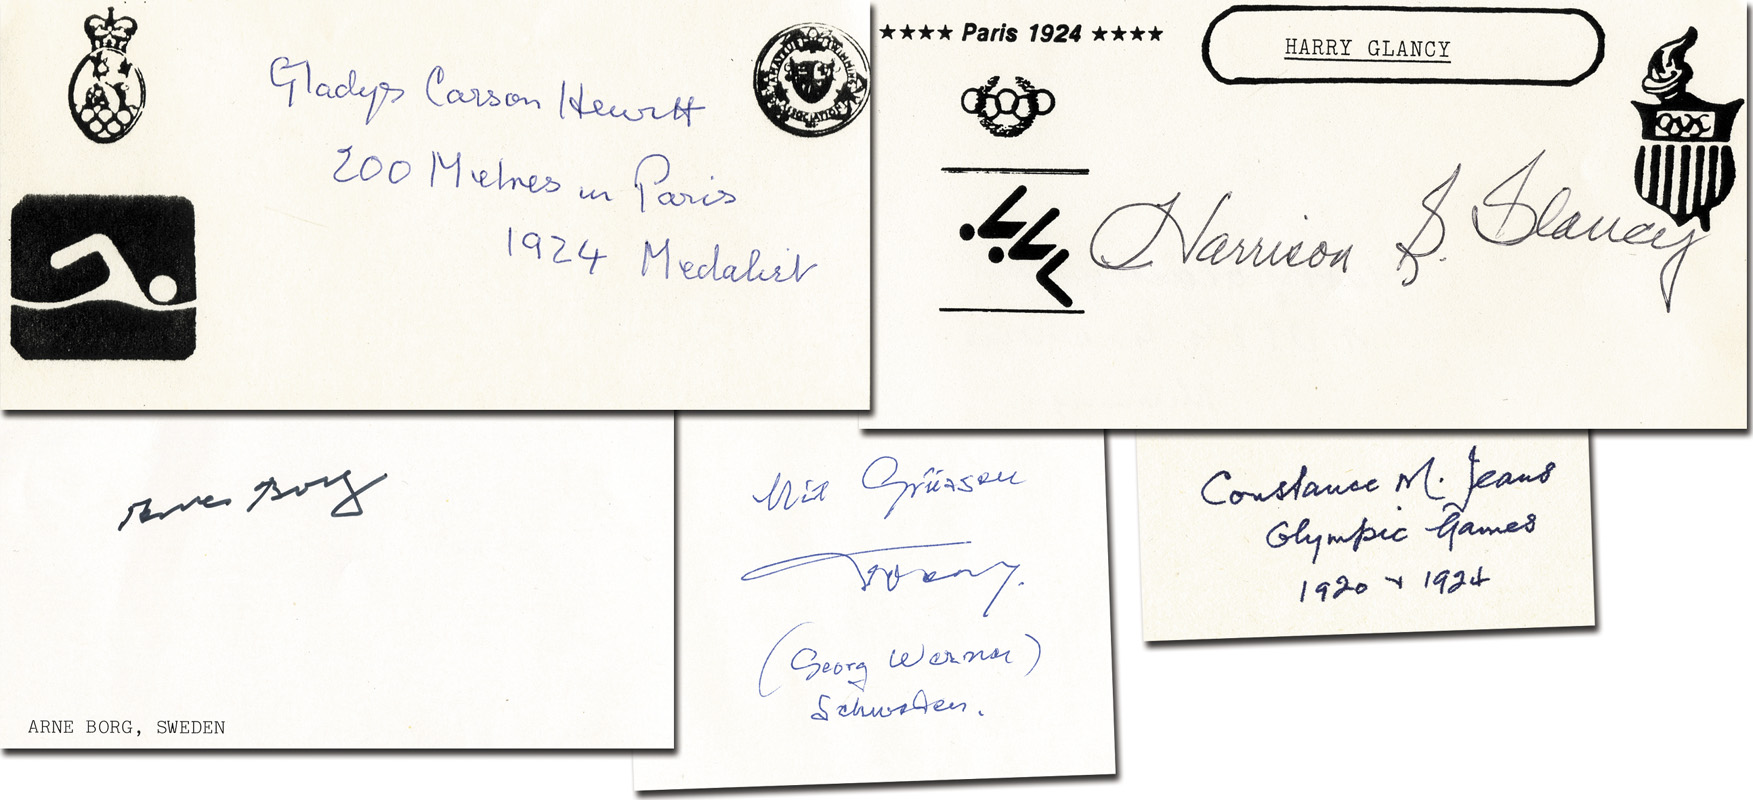 Gladys Carson Hewitt
200 Metres in Paris
1924 Medalist
★★★★ Paris 1924 ★★★★
HARRY GLANCY
Harrison S. Glancy
Arne Borg
ARNE BORG, SWEDEN
Mit Grüssen
(Georg Werner)
Schweden.
Constance M. Jeans
Olympic Games
1920 + 1924